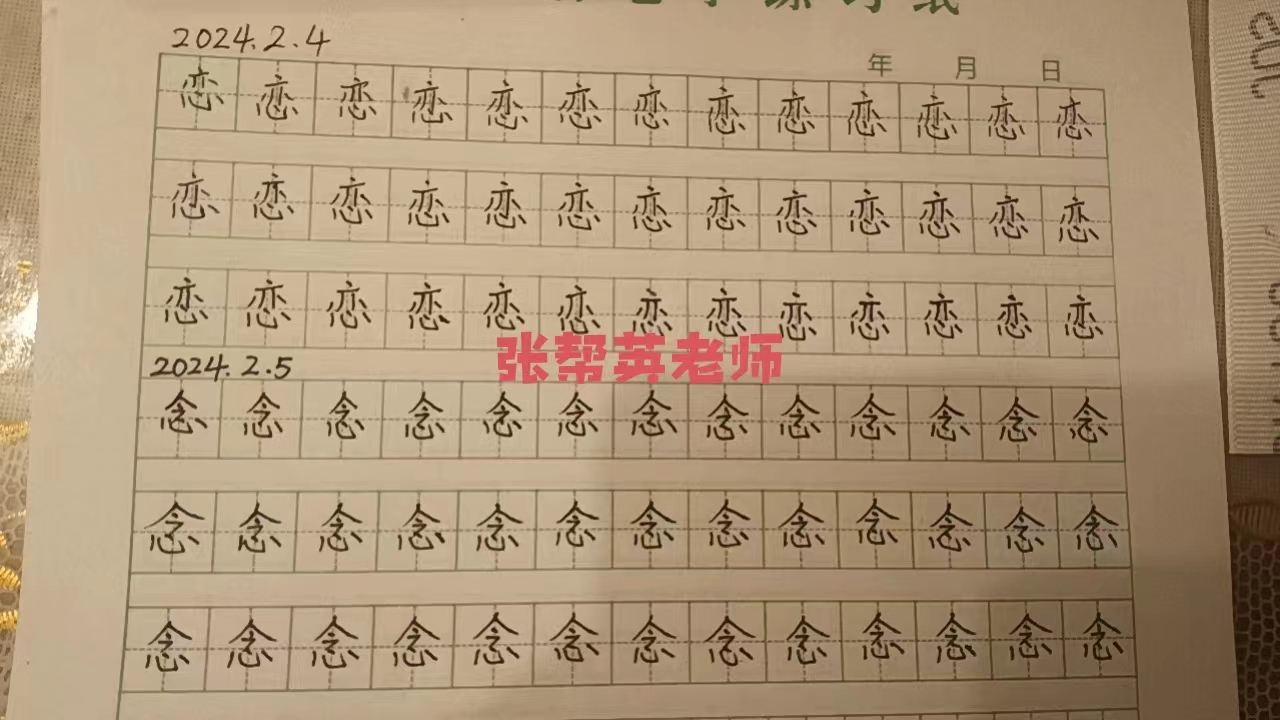 2024.2.4
年 月 日
恋恋恋恋恋恋恋恋恋恋恋恋恋
恋恋恋恋恋恋恋恋恋恋恋恋恋
恋恋恋恋恋恋恋恋恋恋恋恋恋
张帮英老师
2024.2.5
念念念念念念念念念念念念念
念念念念念念念念念念念念念
念念念念念念念念念念念念念